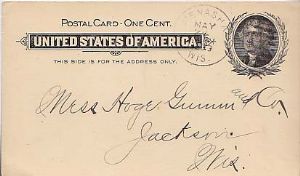 POSTAL CARD - ONE CENT.
UNITED STATES OF AMERICA.
THIS SIDE IS FOR THE ADDRESS ONLY.
MAY
WIS.
Mess Hoge, Gumm and Co.
Jackson
Wis.